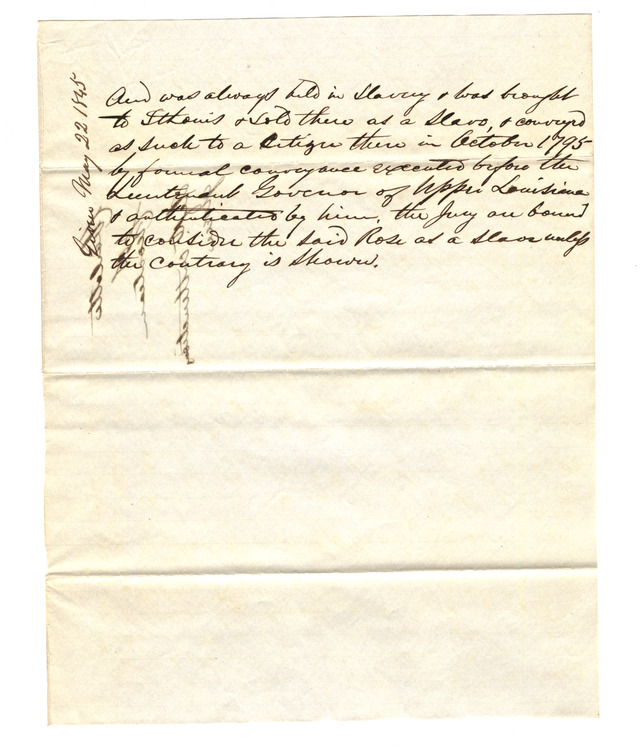 Given May 22 1845
And was always held in Slavery & was brought
to St Louis & sold there as a Slave, & conveyed
as such to a Citizen there in October 1795
by formal conveyance executed before the
Lieutenant Governor of Upper Louisiana
& authenticated by him, the Jury are bound
to consider the said Rose as a Slave unless
the contrary is shown.